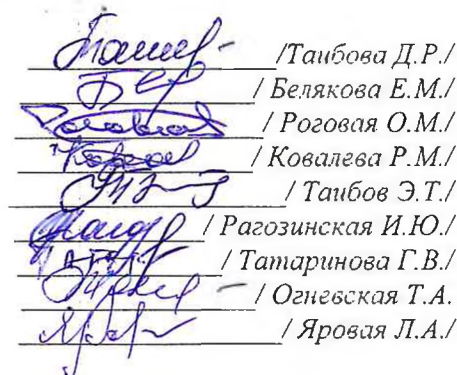 /Таибова Д.Р./
/ Белякова Е.М./
/ Роговая О.М./
/ Ковалева Р.М./
/ Таибов Э.Т./
/ Рагозинская И.Ю./
/ Татаринова Г.В./
/ Огневская Т.А.
/ Яровая Л.А./